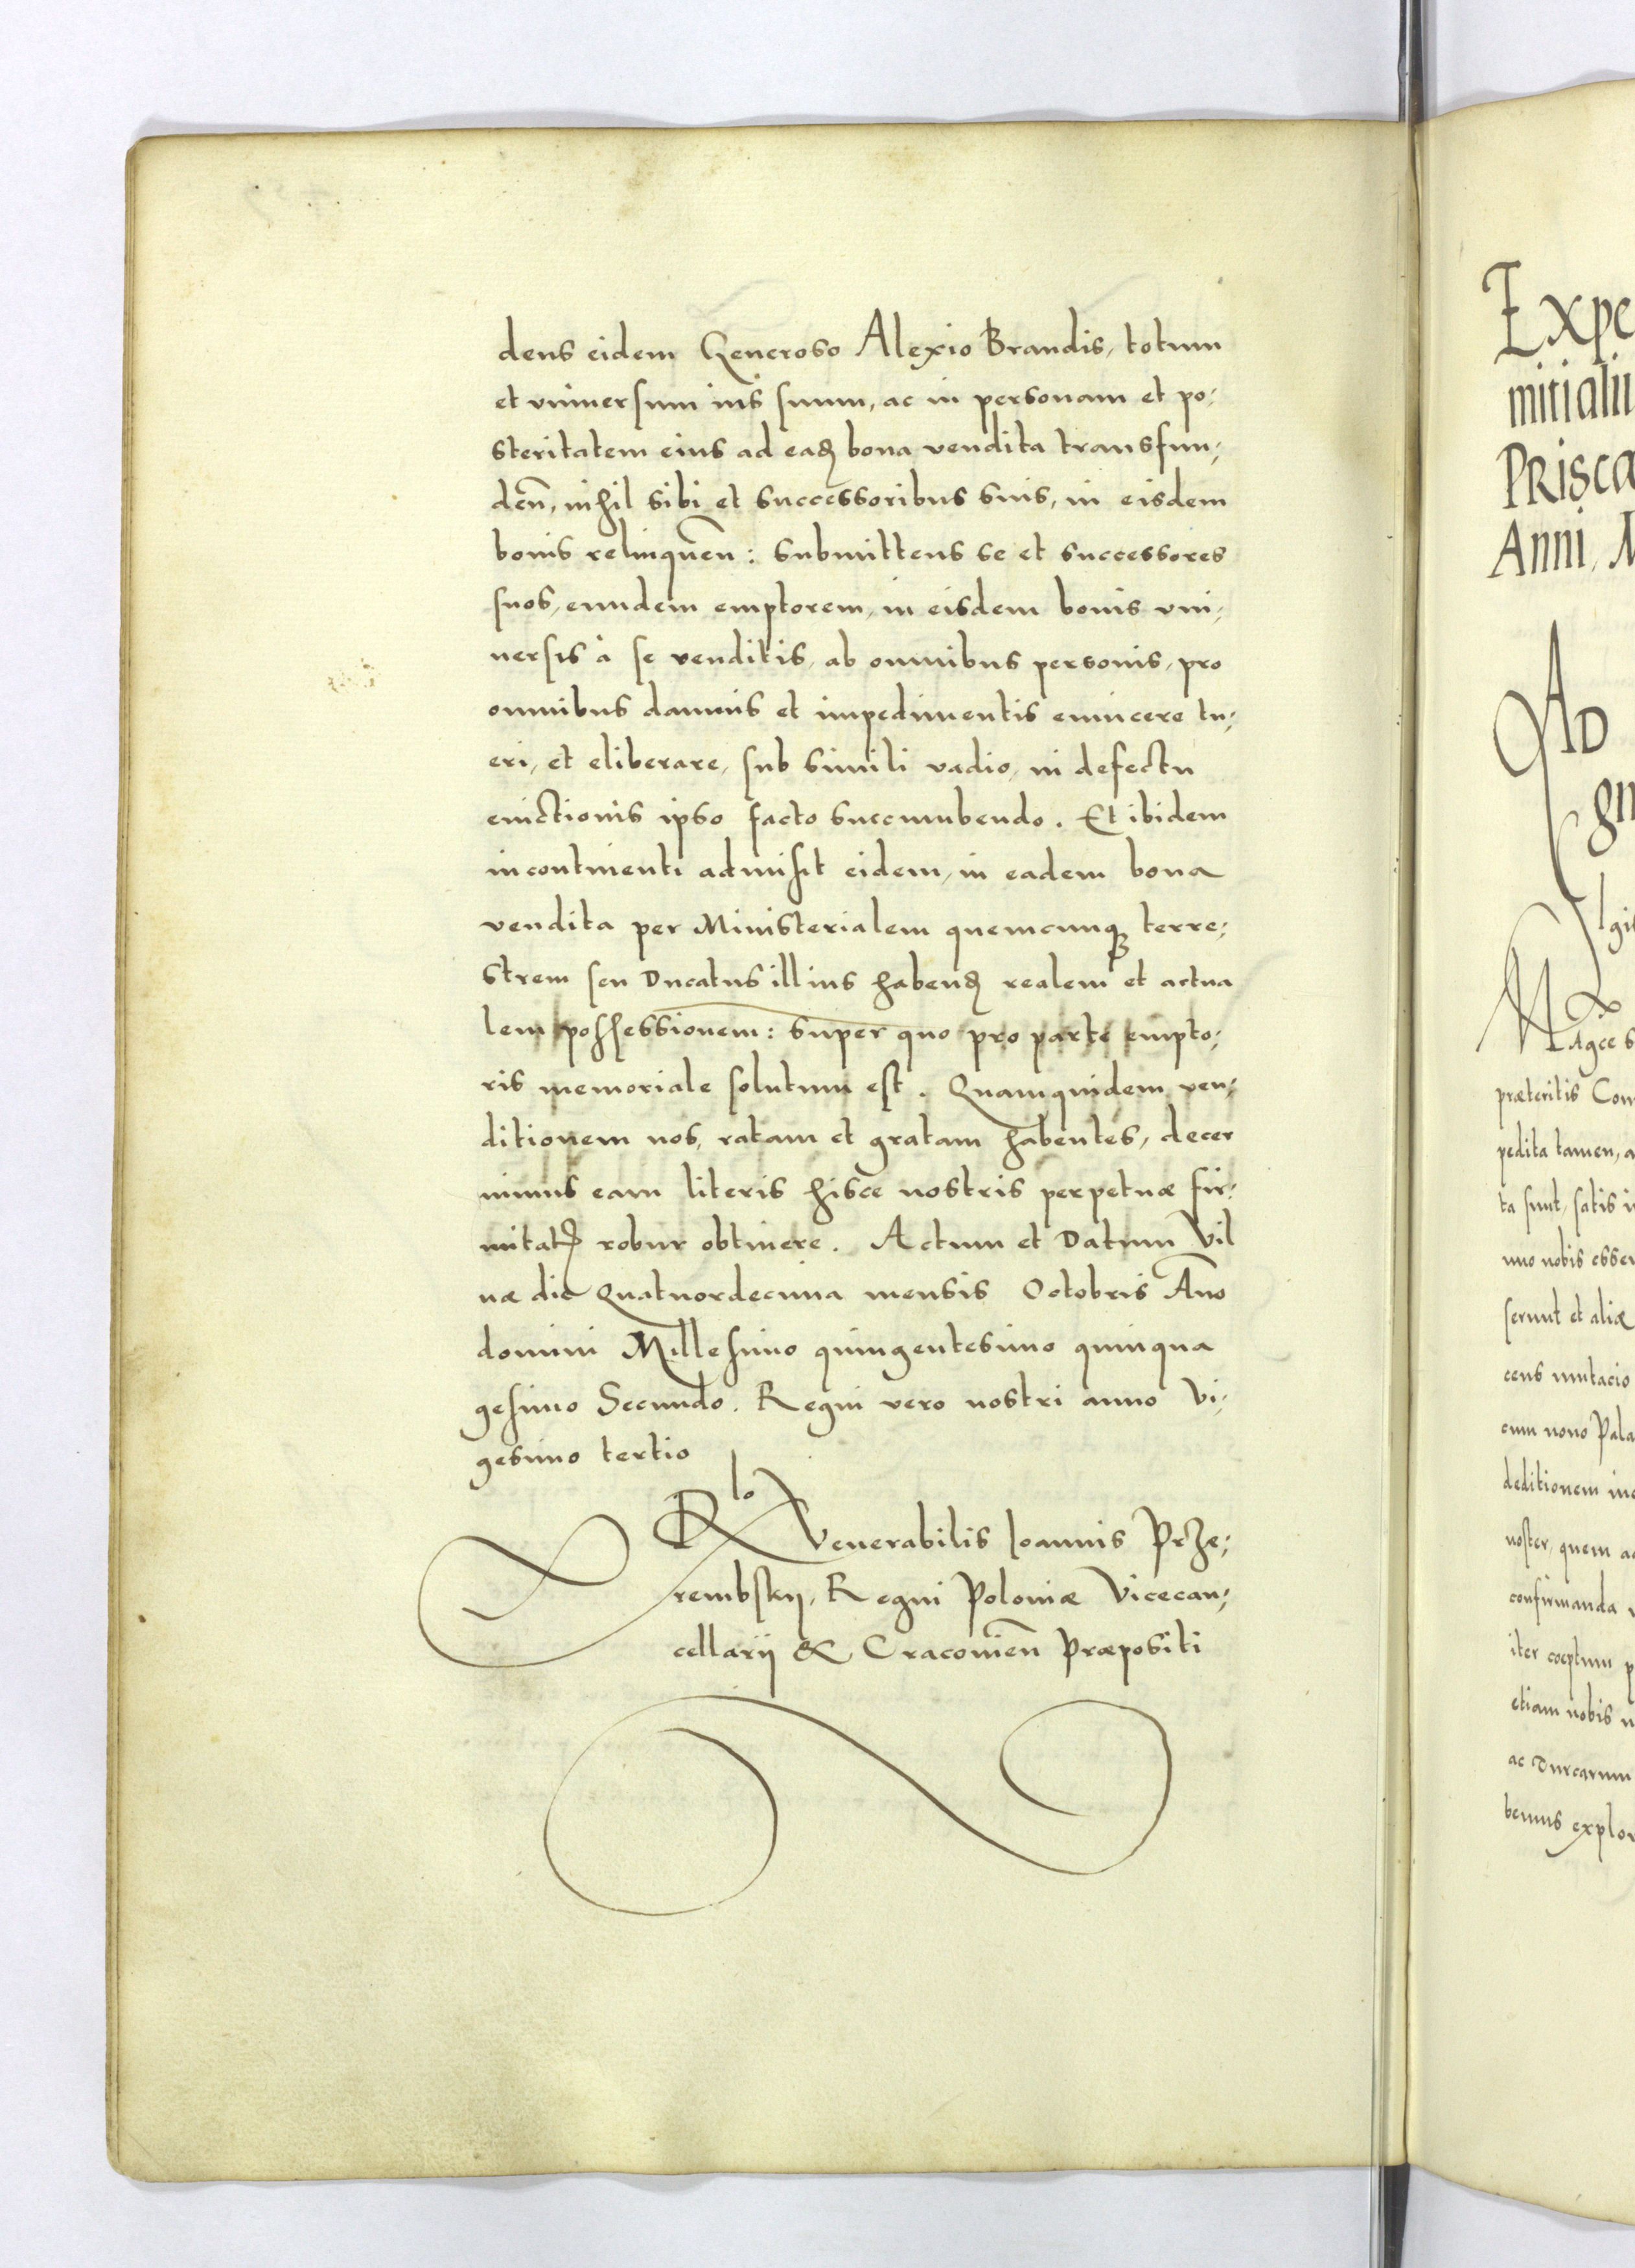 dens eidem Generoso Alexio Brandis, totum
et vniuersum ius suum, ac in personam et po,
steritatem eius ad eadẽ bona vendita transfun,
deñ, nihil sibi et successoribus suis, in eisdem
bonis relinqueñ: submittens se et successores
suos, eundem emptorem, in eisdem bonis vni,
uersis à se venditis, ab omnibus personis, pro
omnibus damnis et impedimentis euincere tu,
eri, et eliberare, sub simili vadio, in defectu
euictionis ipso facto succumbendo. Et ibidem
incontinenti admisit eidem, in eadem bona
vendita per Ministerialem quemcunqꝫ terre,
strem seu Ducatus illius habenđ realem et actua
lem possessionem: super quo pro parte empto,
ris memoriale solutum est. Quamquidem ven,
ditionem nos, ratam et gratam habentes, decer
nimus eam literis hisce nostris perpetuæ fir,
mitatꝭ robur obtinere. Actum et Datum Vil
næ die Quatuordecima mensis Octobris Año
domini Millesimo quingentesimo quinqua
gesimo Secundo. Regni vero nostri anno Vi,
gesimo tertio
Rlo Venerabilis Ioannis Prze,
rembskij, Regni Poloniæ Vicecan,
cellarij & Cracovieñ Præpositi
Expe
mitialiu
PRisca
Anni, M
AD
gn
Agce s
præteritis Com
pedita tamen, a
ta sunt, satis i
mo nobis esse
serunt et aliæ
cens mutacio
cum nono Pala
deditionem in
noster, quem a
confirmanda v
iter coeptum p
etiam nobis n
ac Turcarum
bemus explor